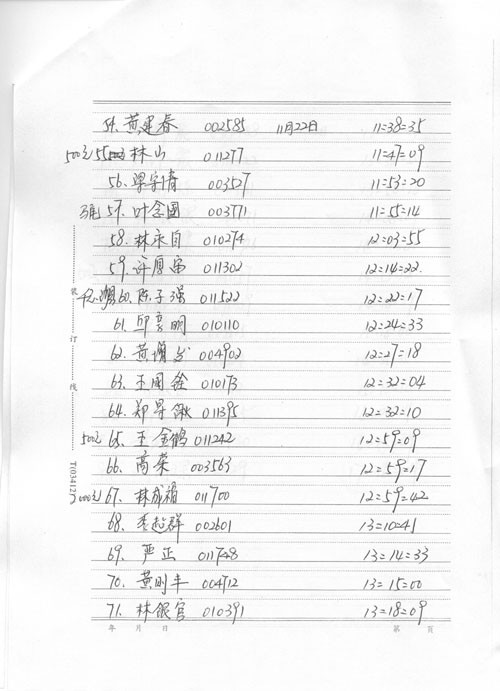 54. 黄建春 002585 11月22日 11=38=35
500元 55 林山 011277 11=47=09
56. 梁宇清 003527 11=53=20
57. 叶念国 003771 11=55=14
58. 林永自 010274 12=03=55
59. 许厚富 011302 12=14=22
60. 陈子强 011522 12=22=17
61. 邱 明 010110 12=24=33
62. 黄 004902 12=27=18
63. 王国 010173 12=32=04
64. 郑 011395 12=32=10
500元 65. 王金鹤 011242 12=59=09
66. 高荣 003563 12=59=17
000元 67. 林成福 011700 12=59=42
68. 李起群 002601 13=10=41
69. 严正 011748 13=14=33
70. 黄则丰 004712 13=15=00
71. 林银官 010391 13=18=09
年 月 日 第 页
装
订
线